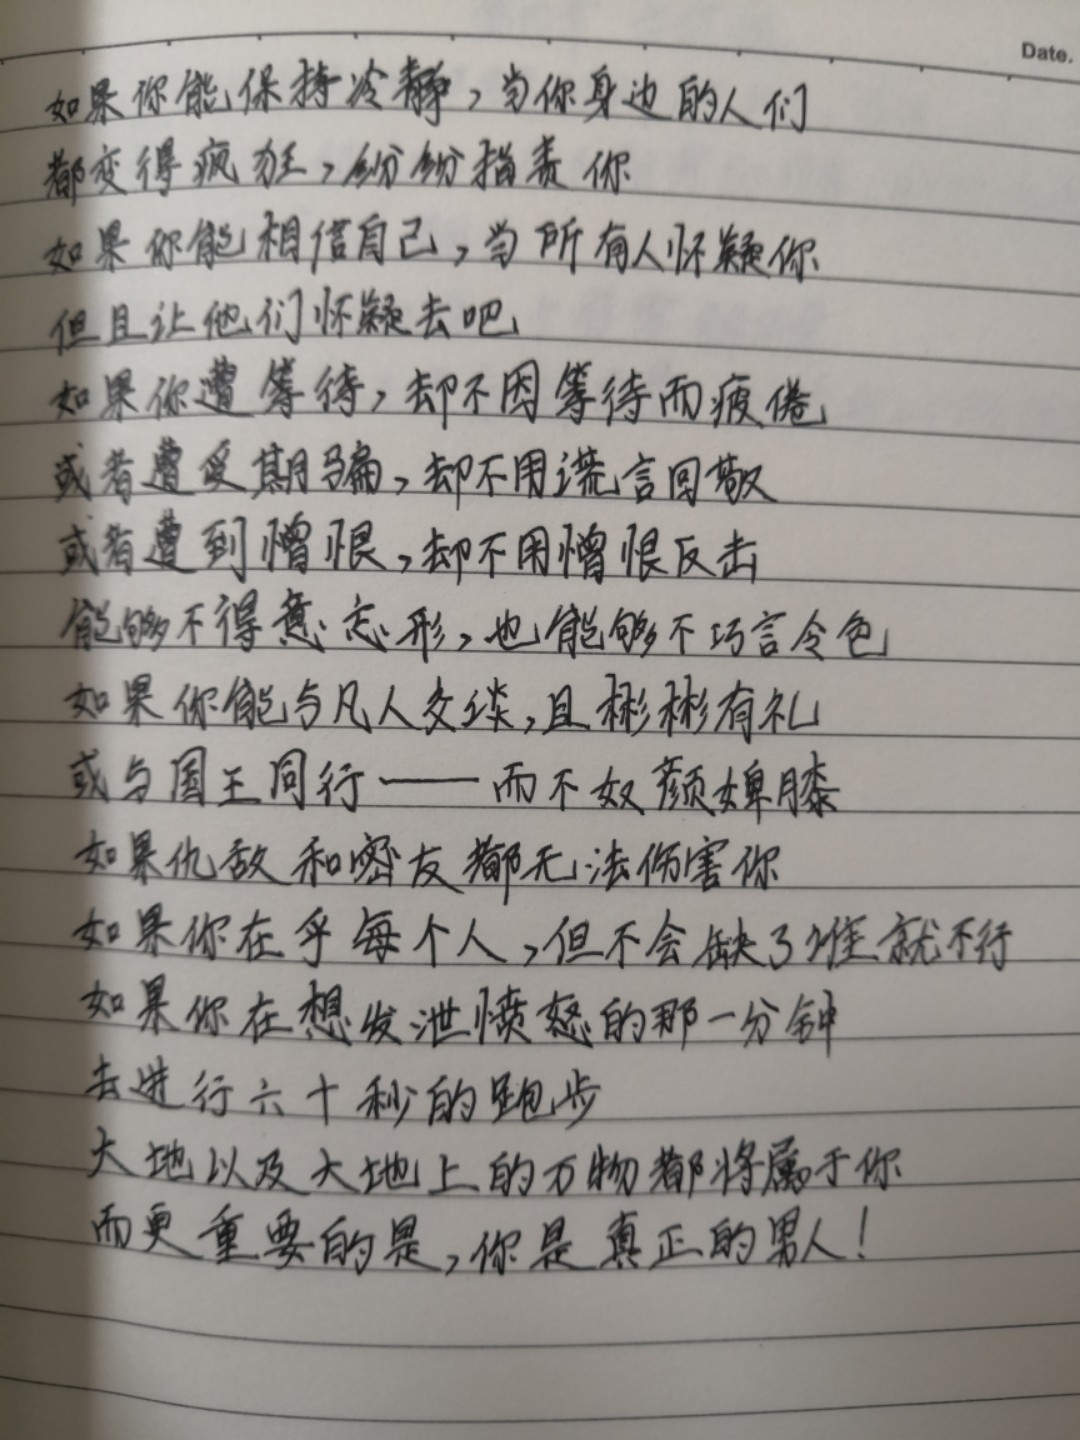 Date.
如果你能保持冷静，当你身边的人们
都变得疯狂，纷纷指责你
如果你能相信自己，当所有人怀疑你
但且让他们怀疑去吧
如果你遭等待，却不因等待而疲倦
或者遭受期骗，却不用谎言回敬
或者遭到憎恨，却不用憎恨反击
能够不得意忘形，也能够不巧言令色
如果你能与凡人交谈，且彬彬有礼
或与国王同行——而不奴颜婢膝
如果仇敌和密友都无法伤害你
如果你在乎每个人，但不会缺了谁就不行
如果你在想发泄愤怒的那一分钟
去进行六十秒的跑步
大地以及大地上的万物都将属于你
而更重要的是，你是真正的男人！